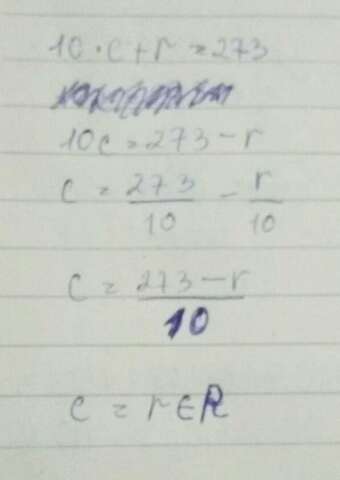 10 · c + r = 273
10c = 273 - r
c = 273/10 - r/10
c = 273 - r/10
c = r ∈ R